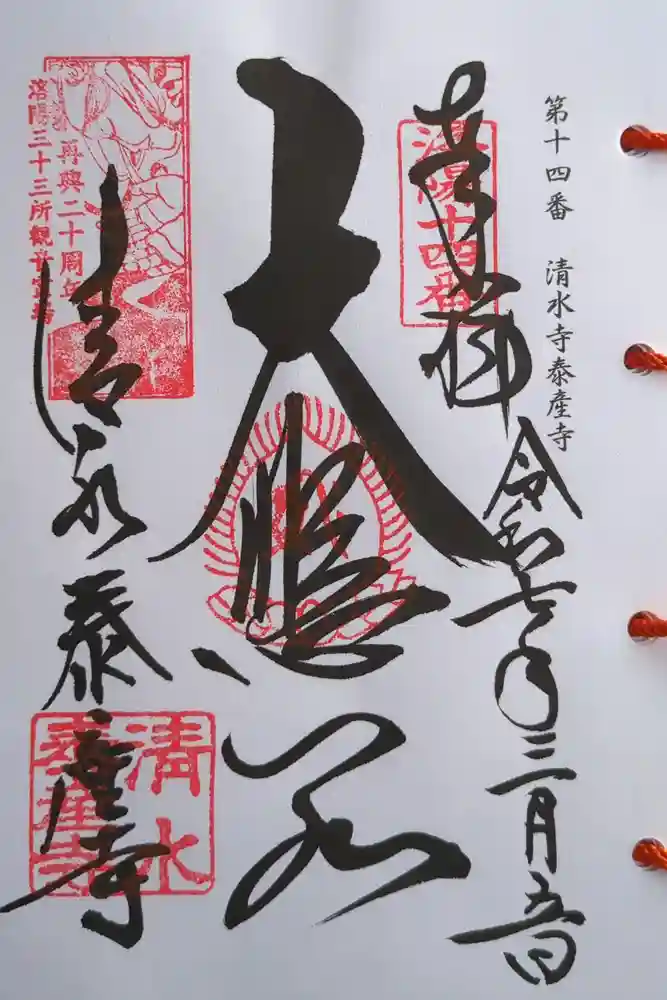 第十四番 清水寺泰産寺
奉拝
令和七年三月五日
洛陽十四番
大悲閣
再興二十周年
洛陽三十三所観音霊場
清水泰産寺
清水
泰産寺